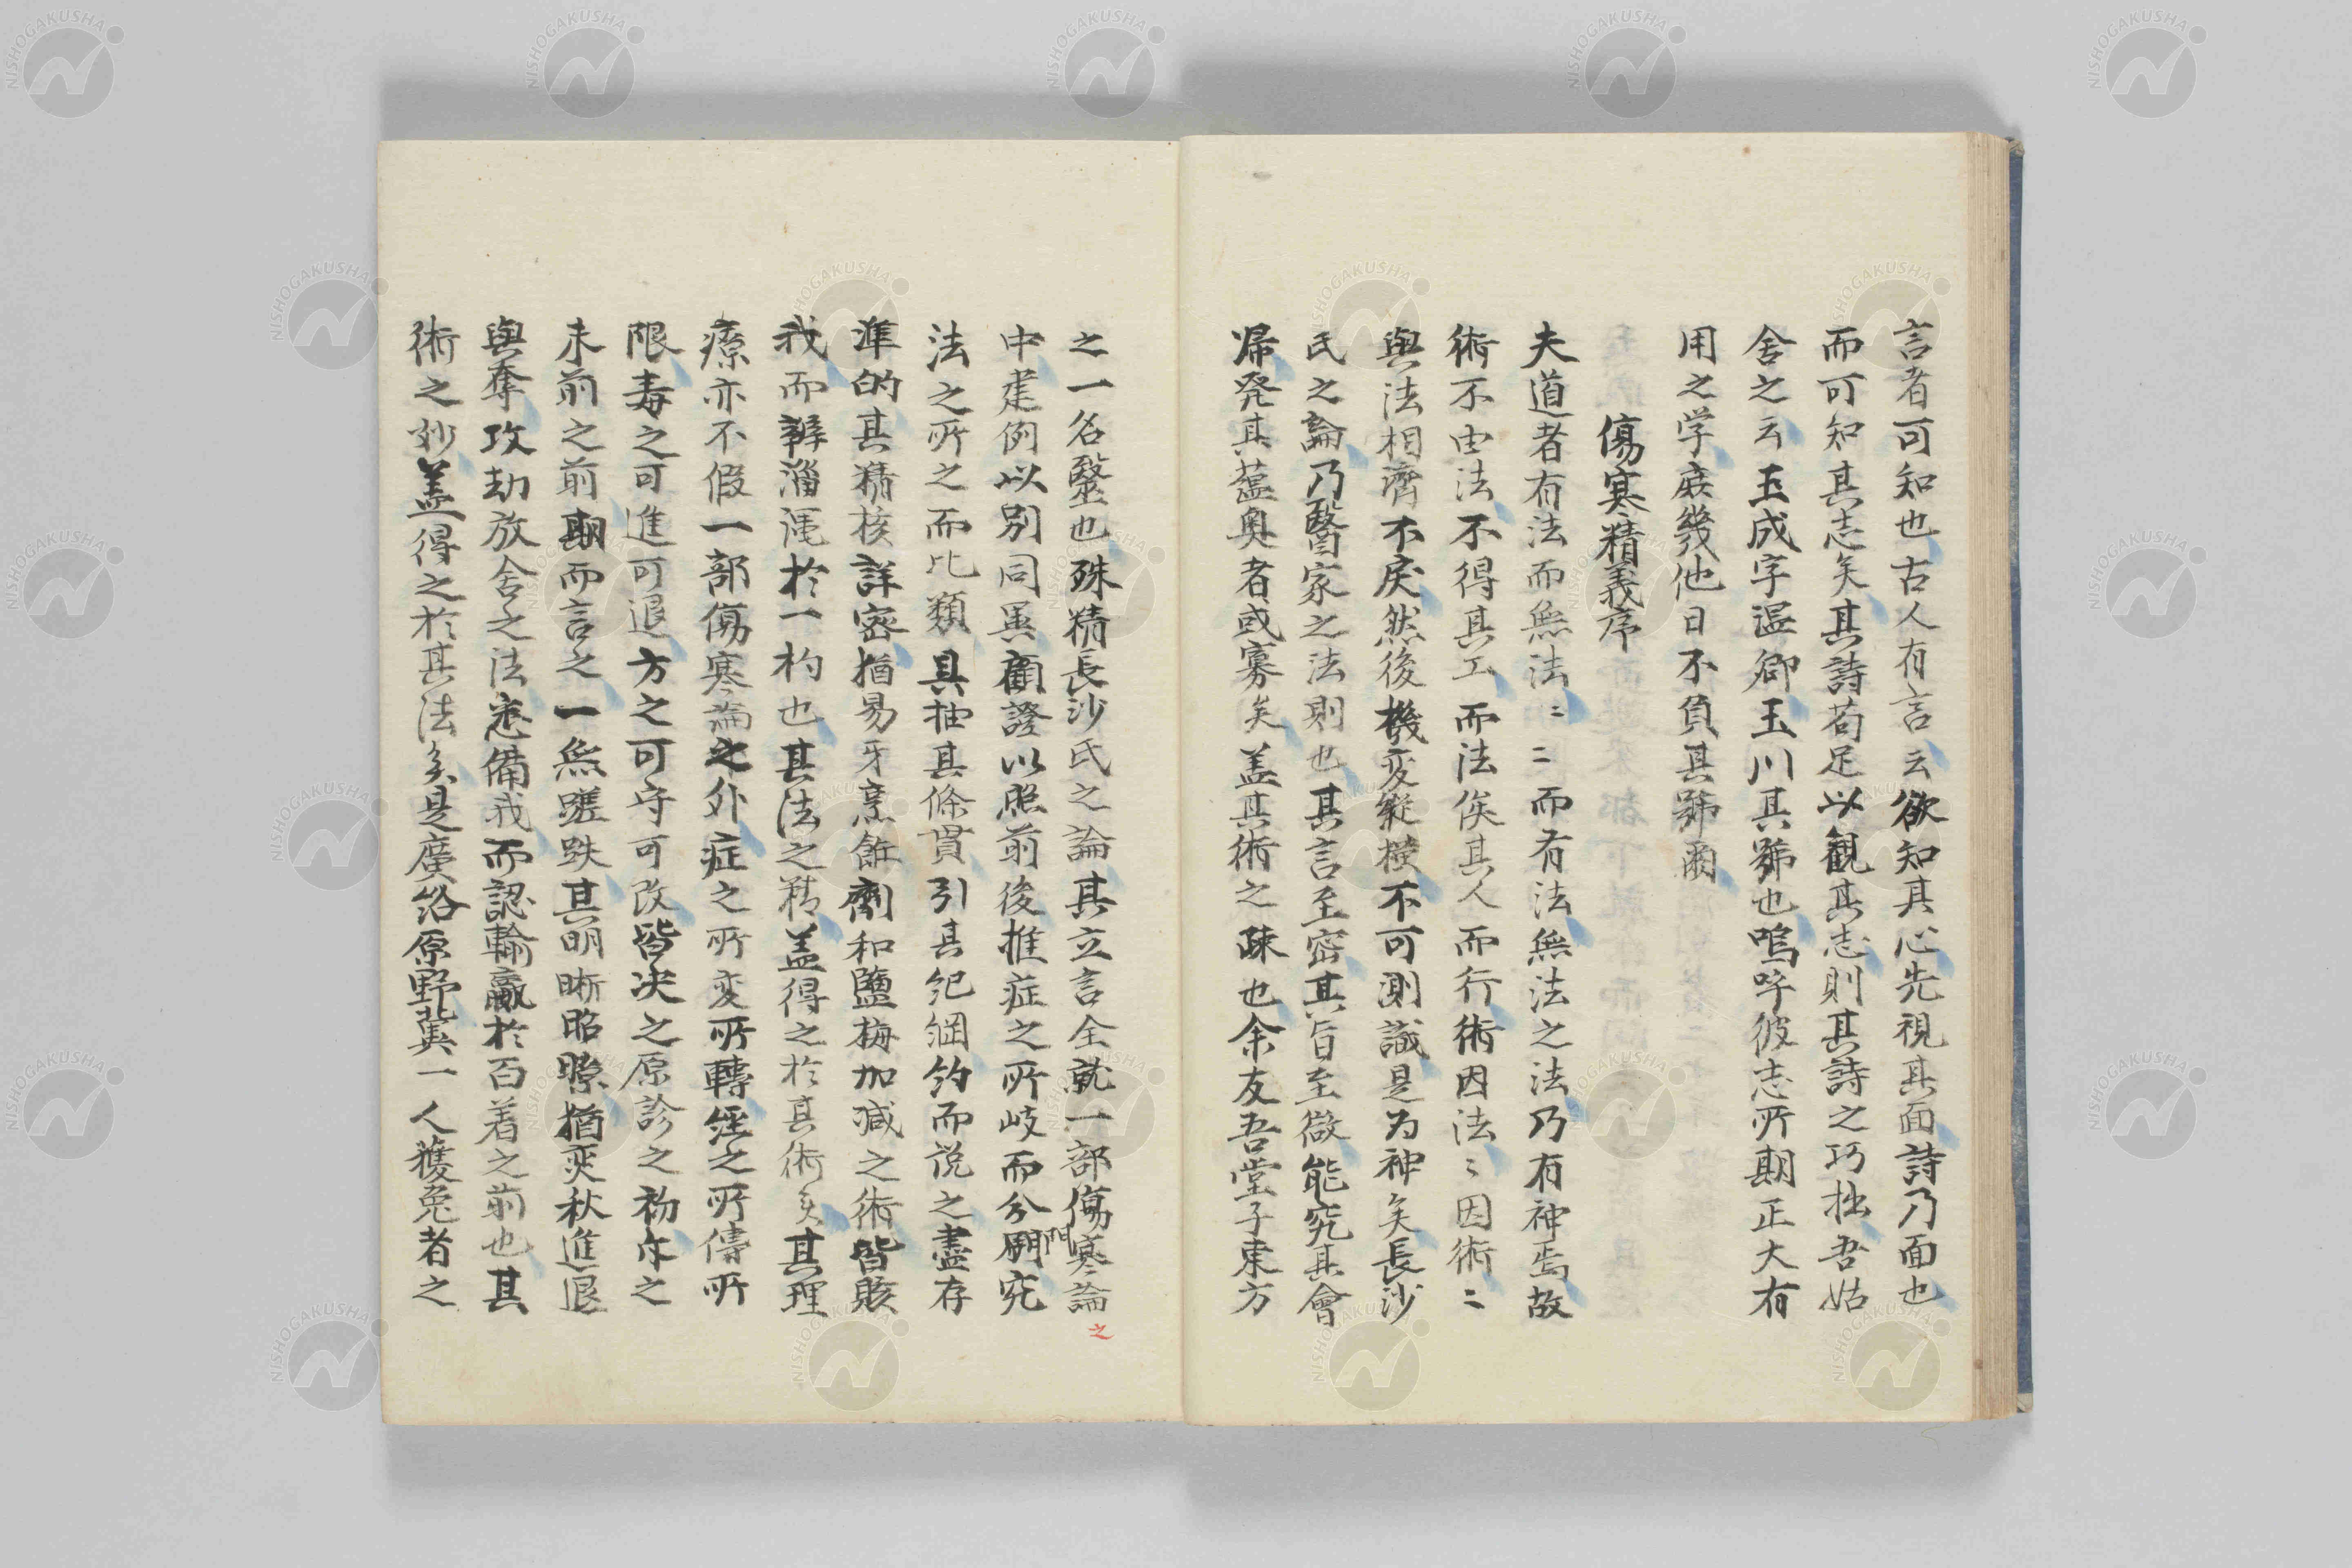 言者可知也古人有言云欲知其心先視其面詩乃面也
而可知其志矣其詩苟足以観其志則其詩之巧拙吾姑
舍之云玉成字温卿玉川其號也嗚呼彼志所期正大有
用之学庶幾他日不負其號爾
傷寒精義序
夫道者有法而無法〻〻而有法無法之法乃有神焉故
術不由法不得其工而法俟其人而行術因法〻因術〻
與法相濟不戻然後機変縦横不可測識是为神矣長沙
氏之論乃醫家之法則也其言至密其旨至微能究其會
帰発其蘊奥者或寡矣盖其術之疎也余友吾堂子東方
之一名毉也殊精長沙氏之論其立言全就一部傷寒論
之
中建例以別同異顧證以照前後推症之所岐而分門究
法之所之而比類具抽其條貫引其紀綱約而説之盡存
準的其精核詳密猶易牙烹飪劑和鹽梅加减之術皆賅
我而辨淄渑於一杓也其法之精盖得之於其術矣其理
療亦不假一部傷寒論之外症之所変所轉經之所傳所
限毒之可進可退方之可守可改皆决之原診之初亦之
未前之前期而言之一無蹉跌其明晰昭瞭猶奕秋進退
與奪攻劫放舍之法悉備我而認輸贏於百着之前也其
術之妙盖得之於其法矣是廣絡原野冀一人獲兎者之
NISHOGAKUSHA